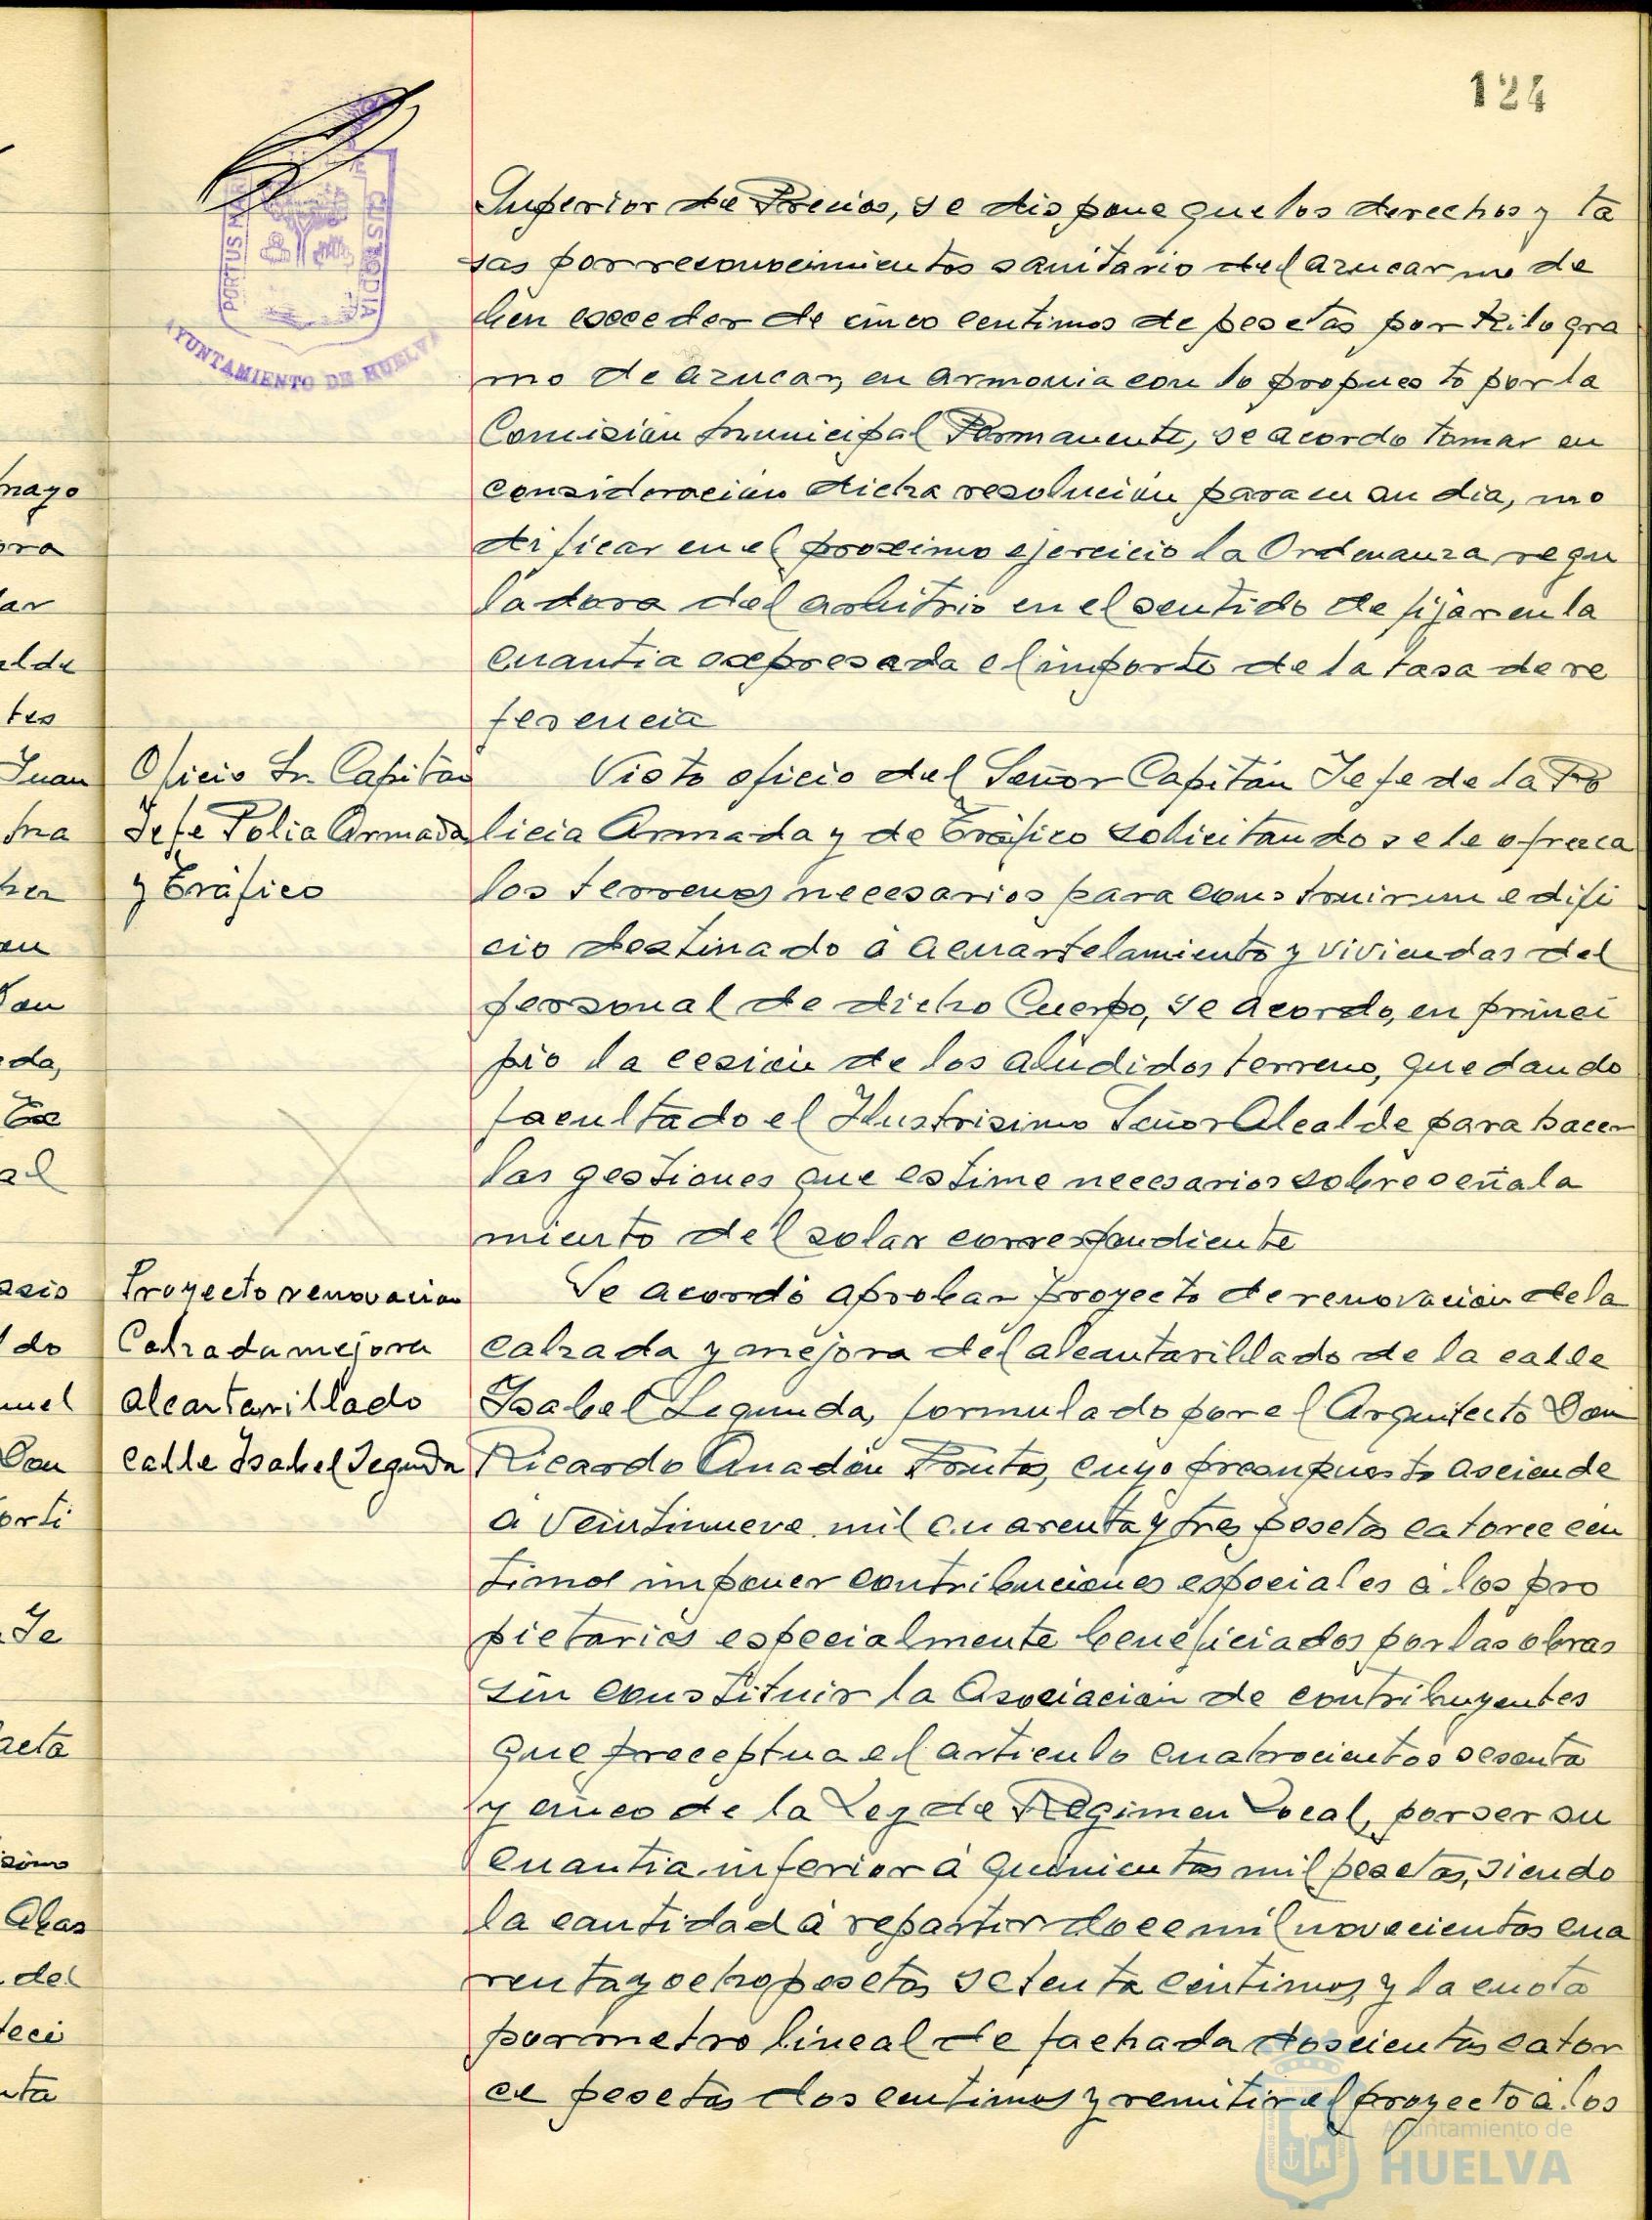 124
PORTUS MAR
CUSTODIA
AYUNTAMIENTO DE HUELVA
Superior de Precios, se dispone que los derechos y ta
sas por reconocimientos sanitario del azucar no de
ben esceder de cinco centimos de pesetas por Kilogra
mo de azucar, en armonia con lo propuesto por la
Comisión Municipal Permanente, se acordo tomar en
consideración dicha resolución para en su dia, mo
dificar en el proximo ejercicio la Ordenanza regu
ladora del arbitrio en el sentido de fijar en la
cuantia expresada el importe de la tasa de re
ferencia
Oficio Sr. Capitan
Jefe Polia Armada
y Tráfico
Visto oficio del Señor Capitán Jefe de la Po
licia Armada y de Tráfico solicitando se le ofrezca
los terrenos necesarios para construir un edifi
cio destinado á acuartelamiento y viviendas del
personal de dicho Cuerpo, se acordo, en princi
pio la cesión de los aludidos terreno, quedando
facultado el Ilustrisimo Señor Alcalde para hacer
las gestiones que estime necesarios sobre señala
miento del solar correspondiente
Proyecto renovacion
Calzada mejora
alcantarillado
calle Isabel Segunda
Se acordó aprobar proyecto de renovación de la
calzada y mejora del alcantarillado de la calle
Isabel Segunda, formulado por el Arquitecto Don
Ricardo Anadón Frutos, cuyo presupuesto asciende
á veintinueve mil cuarenta y tres pesetas catorce cen
timos imponer contribuciones especiales á los pro
pietarios especialmente beneficiados por las obras
sin constituir la Asociación de contribuyentes
que preceptua el articulo cuatrocientos sesenta
y cinco de la Ley de Régimen Local, por ser su
cuantia inferior á quinientas mil pesetas, siendo
la cantidad á repartir doce mil novecientos cua
renta y ocho pesetas setenta céntimos y la cuota
por metro lineal de fachada doscientas cator
ce pesetas dos centimos y remitir el proyecto á los
mayo
ora
lar
alde
tes
Juan
en
da,
al
do
Don
orti
Je
del
Ayuntamiento de
HUELVA